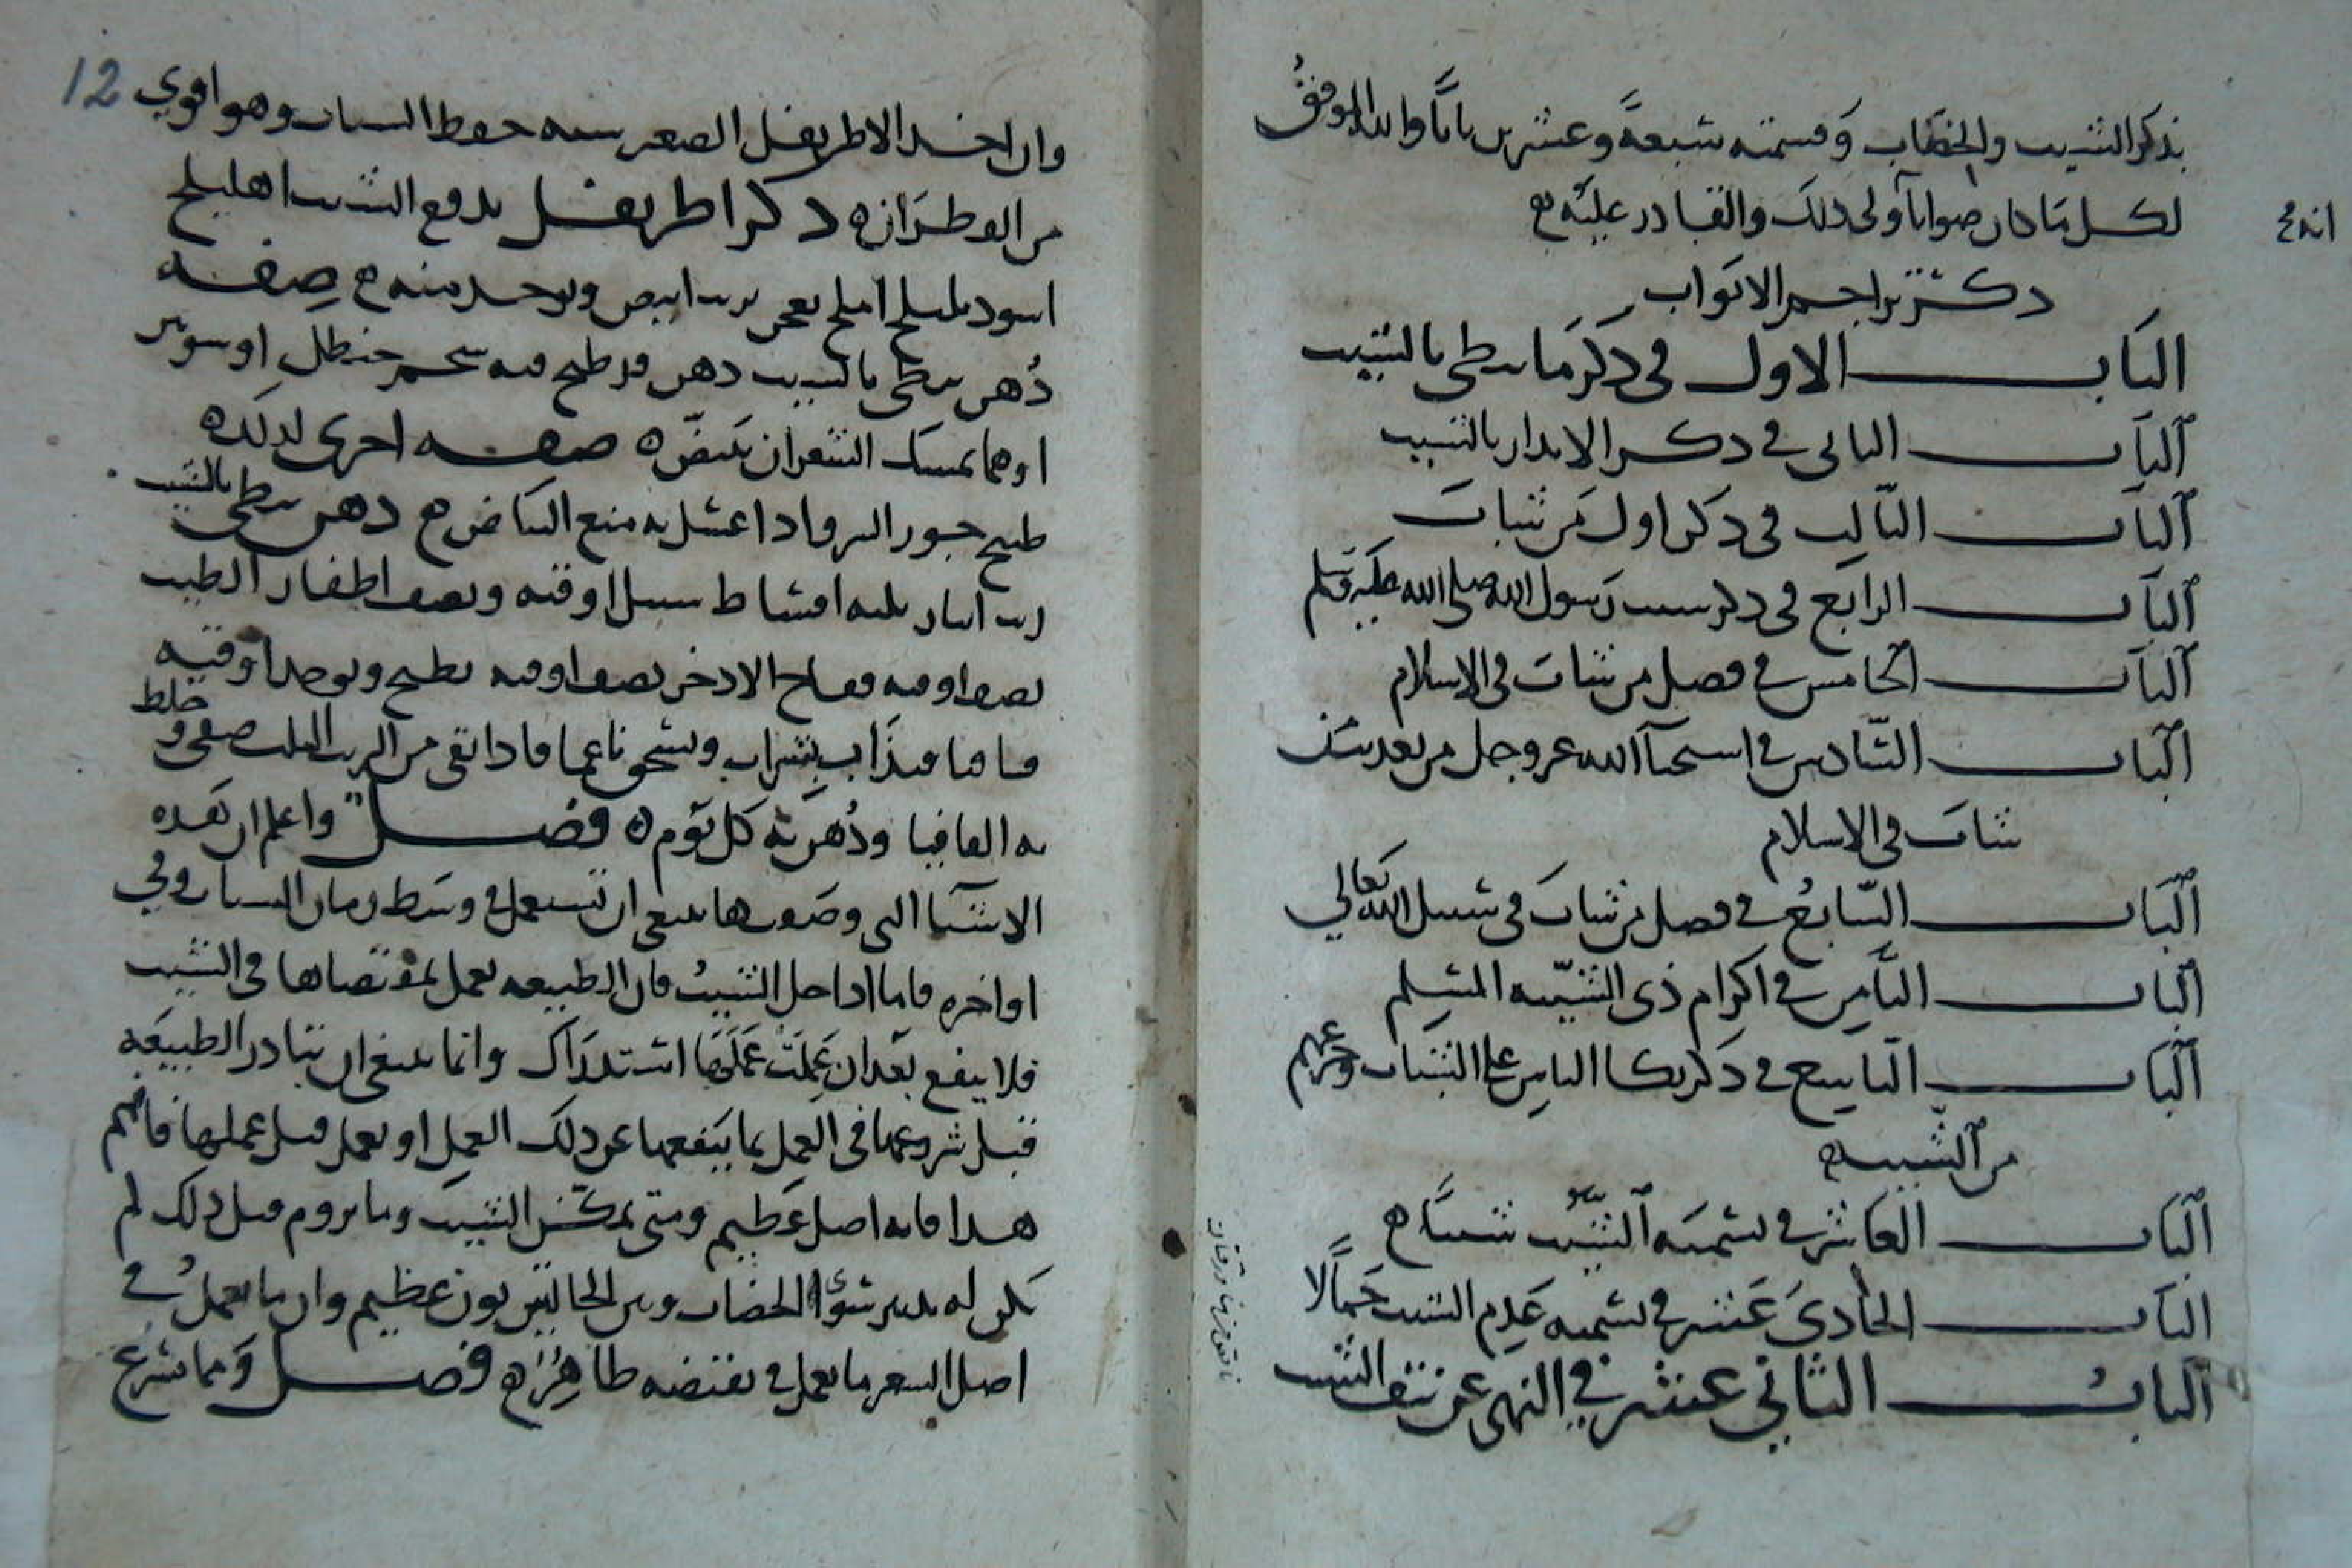 بذكر الشيب والخضاب وقسمته سبعة وعشرين بابا والله الموفق
لكل ما كان صوابا أولى ذلك والقادر عليه
ذكر تراجم الابواب
الباب الاول في ذكر ما يبطى بالشيب
الباب الثاني في ذكر الانذار بالشيب
الباب الثالث في ذكر اول من شاب
الباب الرابع في ذكر شيب رسول الله صلى الله عليه وسلم
الباب الخامس في فضل من شاب في الاسلام
الباب السادس في استحيآ الله عز وجل من تعذيب من
شاب في الاسلام
الباب السابع في فضل من شاب في سبيل الله تعالى
الباب الثامن في اكرام ذى الشيبه المسلم
الباب التاسع في ذكر بكا الناس على الشباب وجزعهم
من الشيب
الباب العاشر في تسميه الشيب شينا
الباب الحادي عشر في تسميه عدم الشيب جمالا
الباب الثاني عشر في النهى عن نتف الشيب
12
وان اخذ الاطريفل الصغير سنه حفظ الشباب وهو اقوي
من القطران ذكر اطريفل يدفع الشيب اهليلج
اسود بليلج املج يعجن بزبيب ابيض ويوخذ منه صفه
دهن يبطى بالشيب دهن قد طبخ فيه شحم حنظل او شونيز
او هما يمسك الشعر ان يبيض صفه اخرى لذلك
طبيخ جوز السرو اذا غسل به منع البياض دهن يبطى بالشيب
زيت انفاق ثلثه اقساط سنبل اوقيه ونصف اظفار الطيب
نصف اوقيه فقاح الاذخر نصف اوقيه يطبخ ويوخذ اوقيه
قاقيا مذاب بشراب ويسحق ناعما فاذا بقى من الزيت الثلث صفى و خلط
به القاقيا ودهن به كل يوم فصل واعلم ان هذه
الاشيآ التى وصفوها ينبغى ان تستعمل في وسط زمان الشباب وفي
اواخره فاما اذا حل الشيب فان الطبيعه تعمل بمقتضاها في الشيب
فلا ينفع بعد ان عملت عملها استدراك وانما ينبغى ان تبادر الطبيعه
قبل شروعها في العمل بما يدفعها عن ذلك العمل او يعمل قبل عملها فافهم
هذا فانه اصل عظيم ومتى تمكن الشيب وما يروم قبل ذلك لم
يكن له تدبير سوى الخضاب وبين الحالتين بون عظيم وان ما يعمل في
اصل الشعر ما يعمل في نقضه ظاهره فصل ومما يسرع